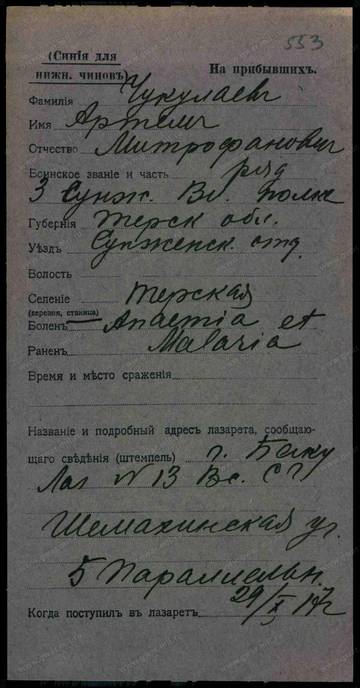 553
(Синія для
нижн. чиновъ)
На прибывшихъ.
Фамилія Чукулаевъ
Имя Артемъ
Отчество Митрофанович
Воинское званіе и часть ряд
3 Сунж. Вл. полка
Губернія Терск обл.
Уѣздъ Сунженск. отд.
Волость
Селеніе Терская
(деревня, станица)
Боленъ — Anaemia et
Раненъ Malaria
Время и мѣсто сраженія
Названіе и подробный адресъ лазарета, сообщаю-
щаго свѣдѣнія (штемпель) г. Баку
Лаз N 13 Вс. С Г
Шемахинская ул.
5 Параллельн.
Когда поступилъ въ лазаретъ 29/X 17 г